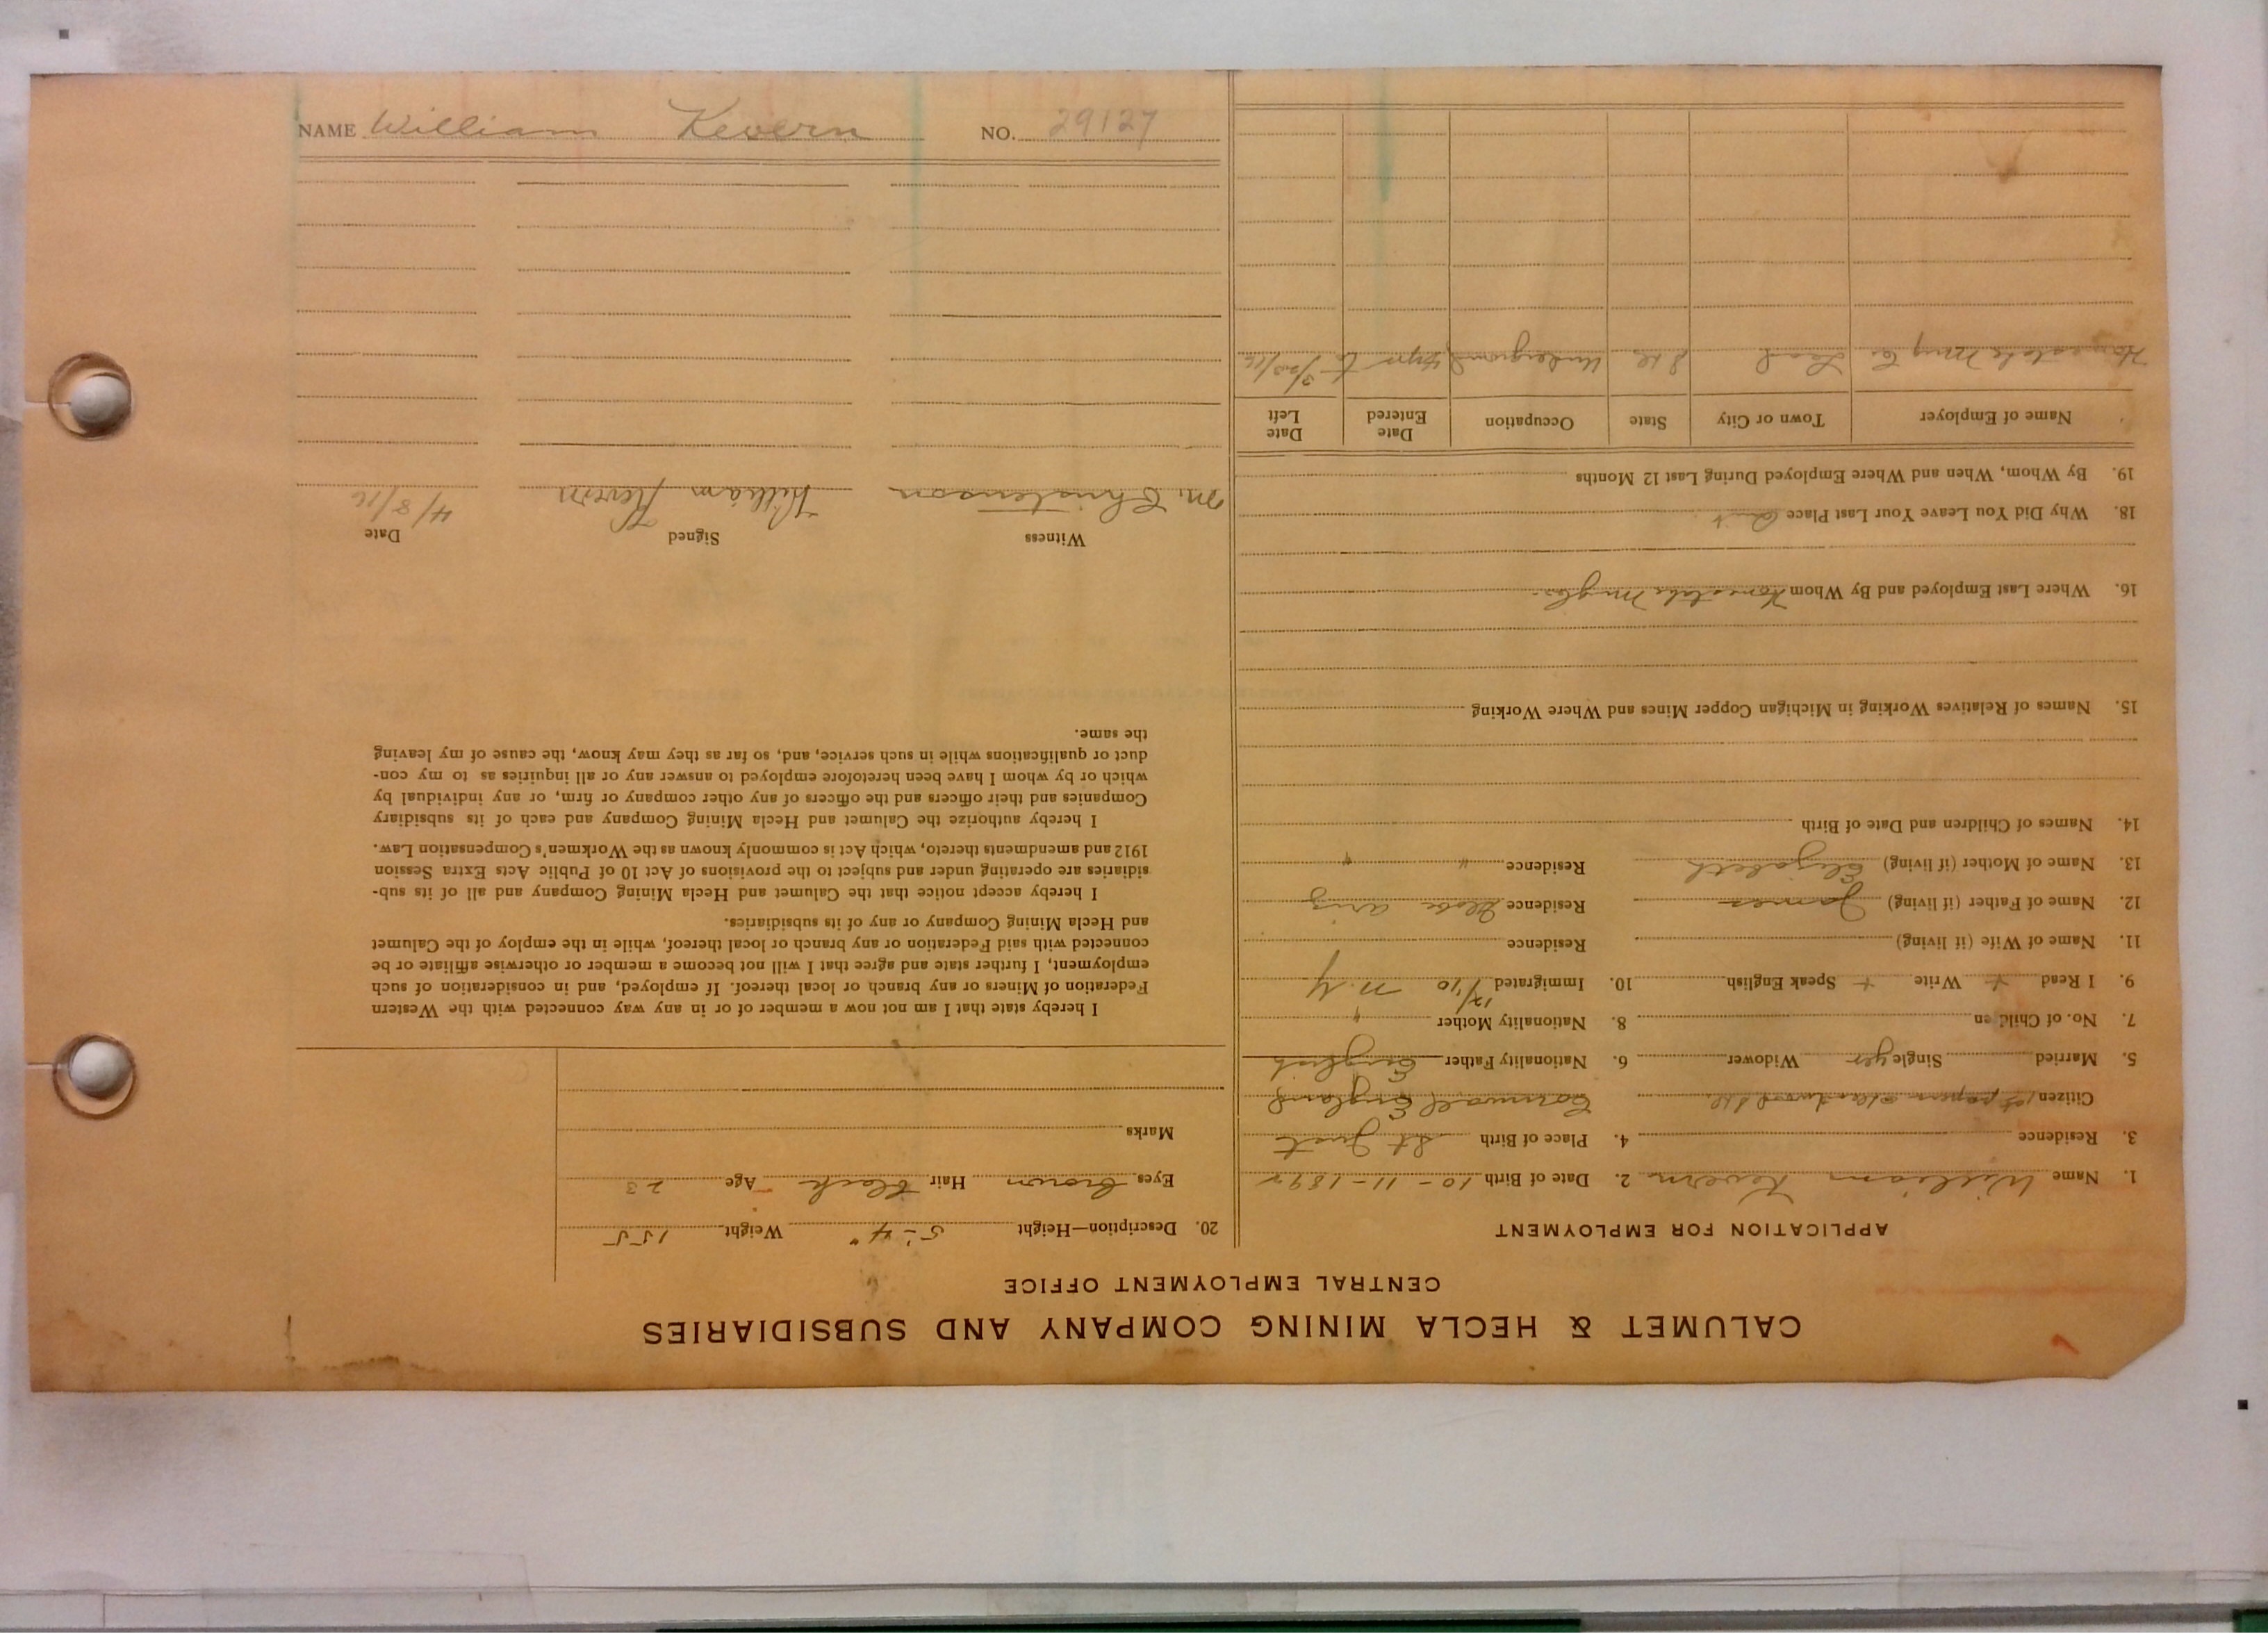 CALUMET & HECLA MINING COMPANY AND SUBSIDIARIES
CENTRAL EMPLOYMENT OFFICE
APPLICATION FOR EMPLOYMENT
1. Name William Kevern 2. Date of Birth 10-11-1892
3. Residence 4. Place of Birth St Just
Citizen 1st papers Cornwall England
5. Married Single yes Widower 6. Nationality Father English
7. No. of Children 8. Nationality Mother "
9. I Read + Write + Speak English 10. Immigrated 12/10 N.Y
11. Name of Wife (if living) Residence
12. Name of Father (if living) James Residence Globe Ariz
13. Name of Mother (if living) Elizabeth Residence " "
14. Names of Children and Date of Birth
15. Names of Relatives Working in Michigan Copper Mines and Where Working
16. Where Last Employed and By Whom Homestake Mng Co.
18. Why Did You Leave Your Last Place Quit
19. By Whom, When and Where Employed During Last 12 Months
Name of Employer Town or City State Occupation Date Entered Date Left
Homestake Mng Co Lead S Dk Underground 3/23/16
20. Description—Height 5-4" Weight 155
Eyes Brown Hair Black Age 23
Marks
I hereby state that I am not now a member of or in any way connected with the Western
Federation of Miners or any branch or local thereof. If employed, and in consideration of such
employment, I further state and agree that I will not become a member or otherwise affiliate or be
connected with said Federation or any branch or local thereof, while in the employ of the Calumet
and Hecla Mining Company or any of its subsidiaries.
I hereby accept notice that the Calumet and Hecla Mining Company and all of its sub-
sidiaries are operating under and subject to the provisions of Act 10 of Public Acts Extra Session
1912 and amendments thereto, which Act is commonly known as the Workmen's Compensation Law.
I hereby authorize the Calumet and Hecla Mining Company and each of its subsidiary
Companies and their officers and the officers of any other company or firm, or any individual by
which or by whom I have been heretofore employed to answer any or all inquiries as to my con-
duct or qualifications while in such service, and, so far as they may know, the cause of my leaving
the same.
Witness Signed Date
M. Christenson William Kevern 4/8/16
NAME William Kevern NO. 29127